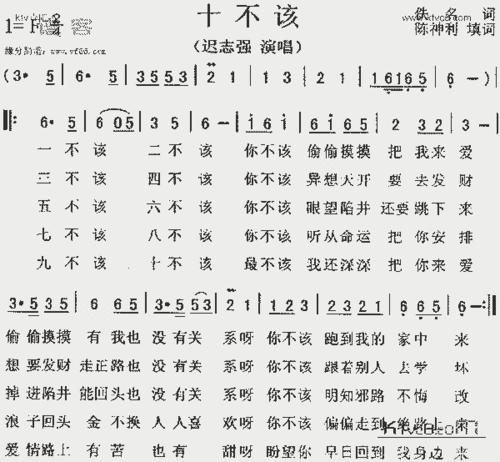 十不该
1=F 2/4
佚名 词
陈神利 填词
(迟志强 演唱)
(3· 5 6· 5 3553 2 1 1 3 2 1 2 16165 3 —)
6· 5 6 05 3 5 6 — i 6 i 6 i 6 5 2 3 2 3 —
一不该 二不该 你不该 偷偷摸摸 把我来爱
三不该 四不该 你不该 异想天开 要去发财
五不该 六不该 你不该 眼望陷井 还要跳下来
七不该 八不该 你不该 听从命运 把你安排
九不该 十不该 最不该 我还深深 把你来爱
3·5 35 6 65 3· 553 2 1 123 2321 6 65 6 —
偷偷摸摸 有我也 没有关 系呀 你不该 跑到我的 家中来
想要发财 走正路也 没有关 系呀 你不该 跟着别人 去学坏
掉进陷井 能回头也 没有关 系呀 你不该 明知邪路 不悔改
浪子回头 金不换 人人喜 欢呀 你不该 偏偏走到 绝路上来
爱情路上 有苦 也有 甜呀 盼望你 早日回到 我身边来